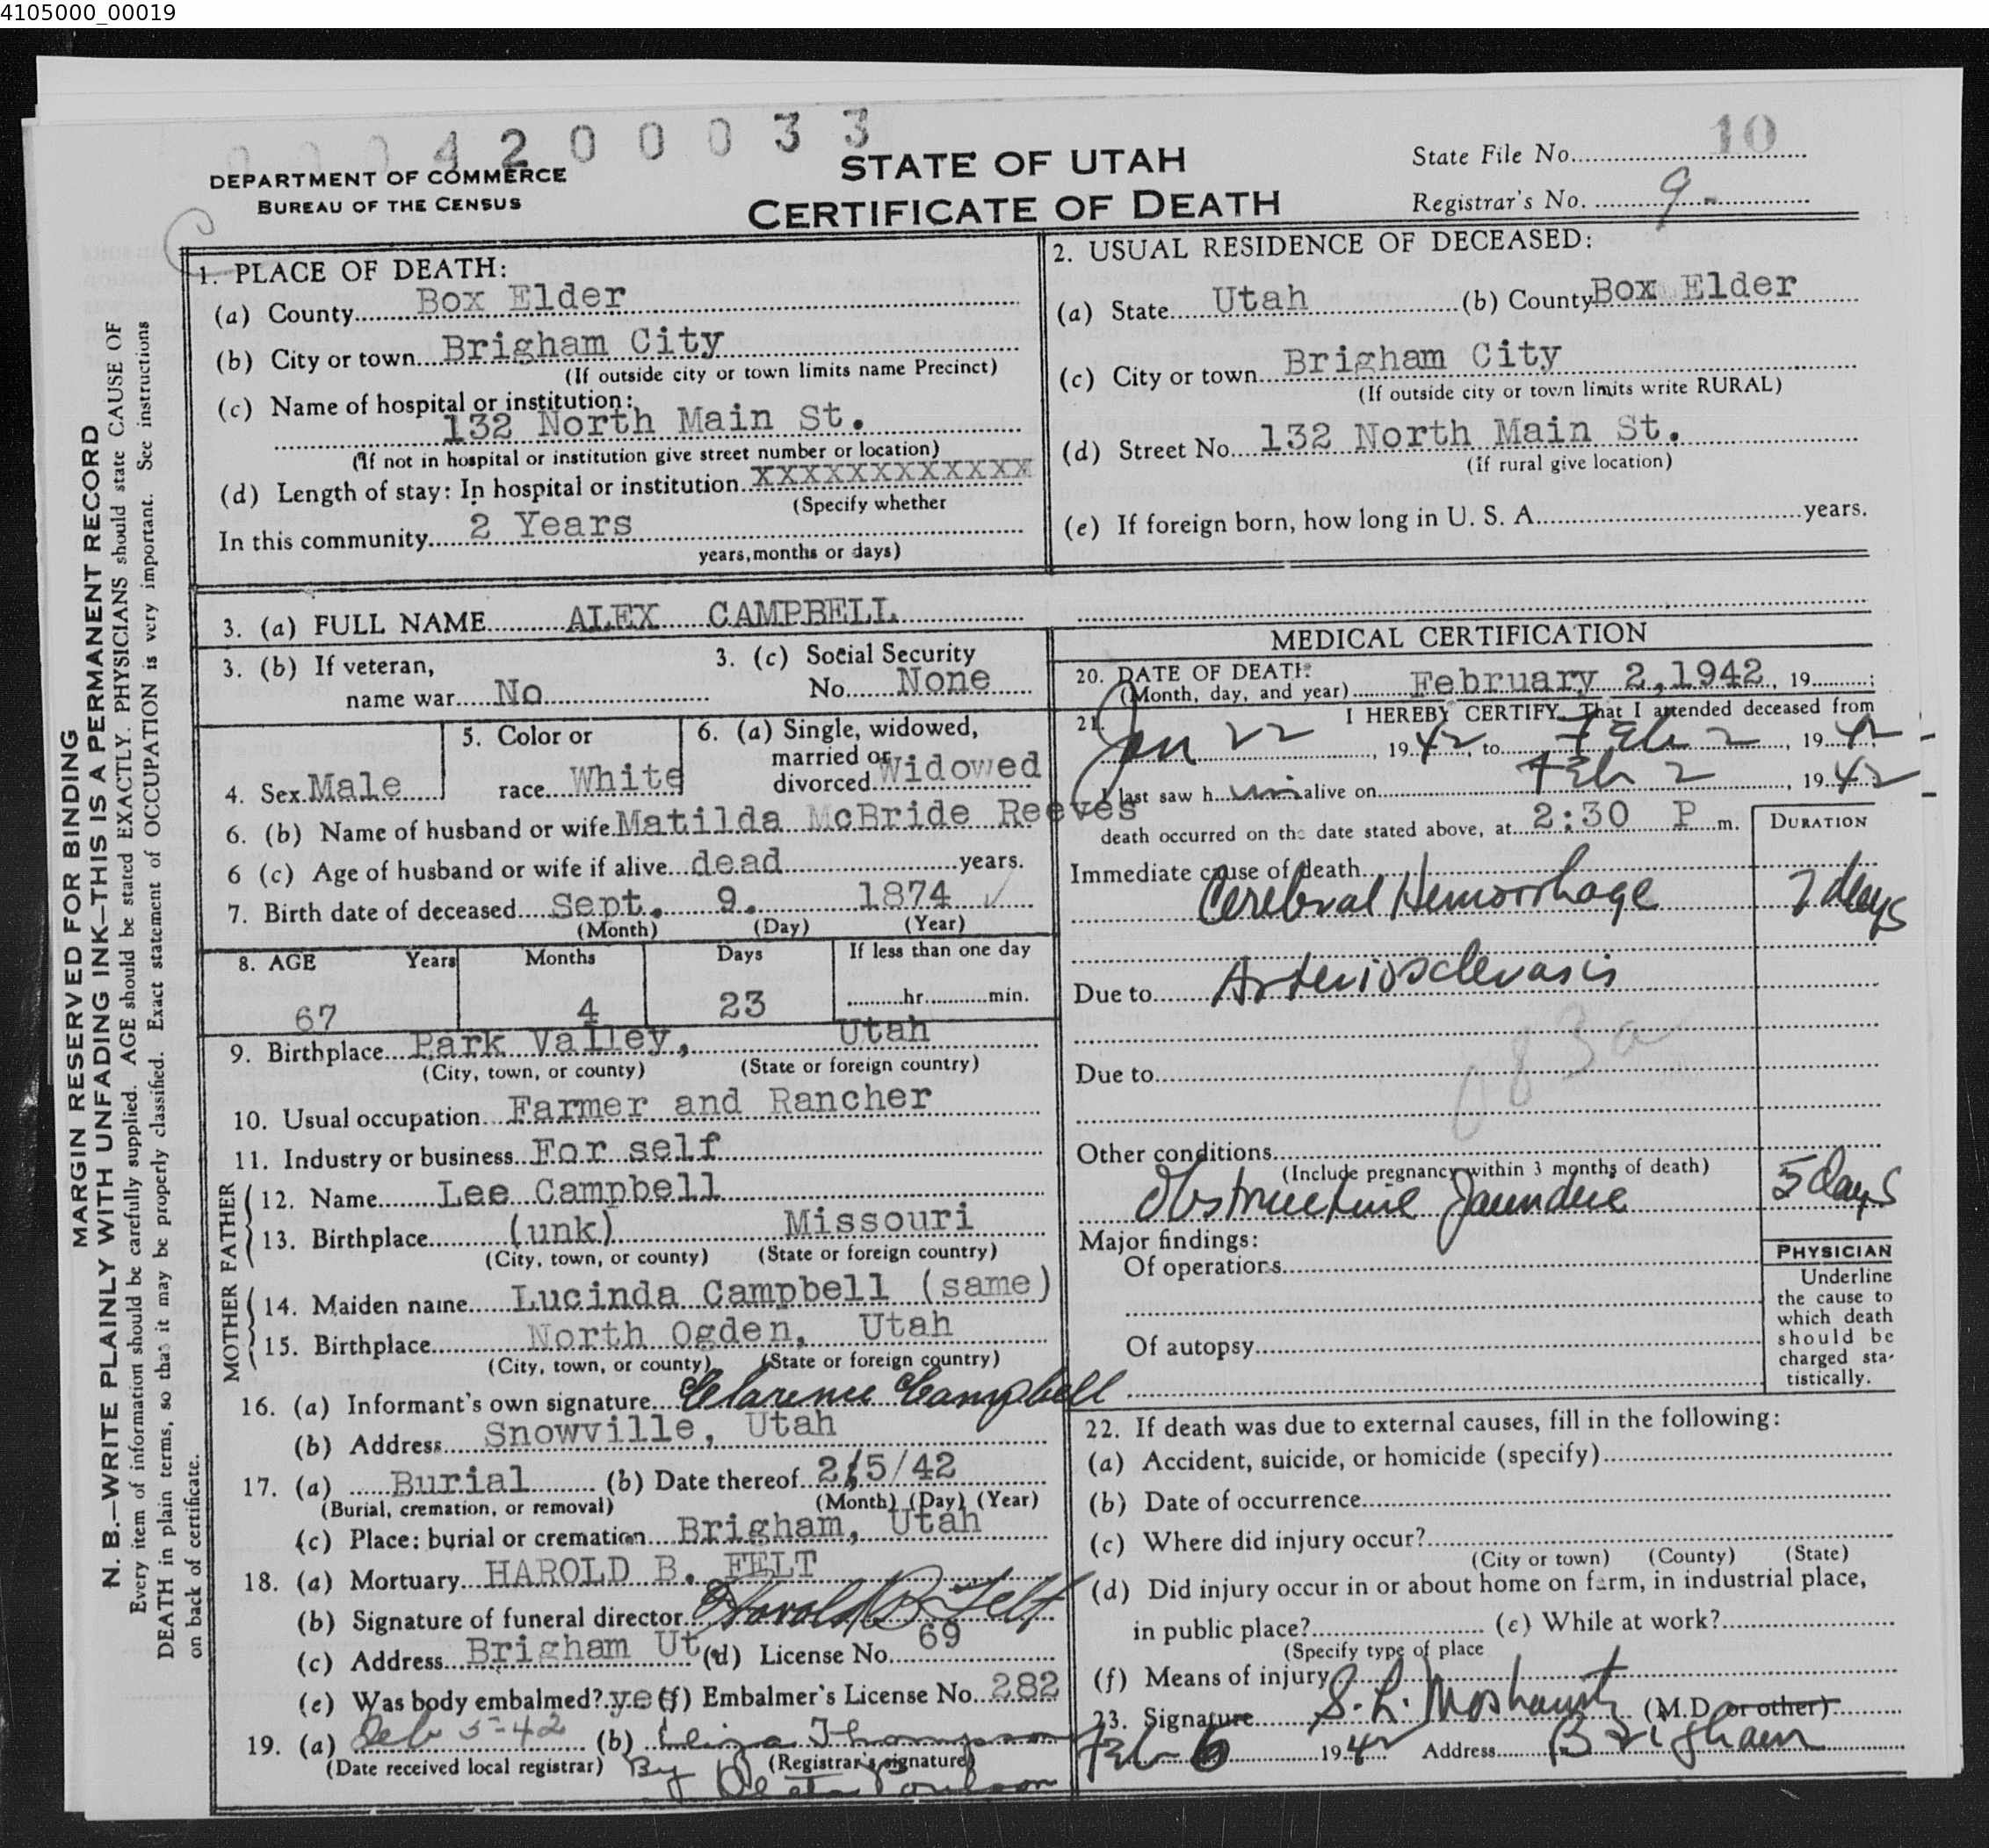 4105000_00019
4 2 0 0 0 3 3
10
DEPARTMENT OF COMMERCE
BUREAU OF THE CENSUS
STATE OF UTAH
CERTIFICATE OF DEATH
State File No.
Registrar's No. 9-
MARGIN RESERVED FOR BINDING
N. B.—WRITE PLAINLY WITH UNFADING INK—THIS IS A PERMANENT RECORD
Every item of information should be carefully supplied. AGE should be stated EXACTLY. PHYSICIANS should state CAUSE OF
DEATH in plain terms, so that it may be properly classified. Exact statement of OCCUPATION is very important. See instructions
on back of certificate.
1. PLACE OF DEATH:
(a) County Box Elder
(b) City or town Brigham City
(If outside city or town limits name Precinct)
(c) Name of hospital or institution:
132 North Main St.
(If not in hospital or institution give street number or location)
(d) Length of stay: In hospital or institution XXXXXXXXXXXX
(Specify whether
In this community 2 Years
years, months or days)
2. USUAL RESIDENCE OF DECEASED:
(a) State Utah (b) County Box Elder
(c) City or town Brigham City
(If outside city or town limits write RURAL)
(d) Street No. 132 North Main St.
(If rural give location)
(e) If foreign born, how long in U. S. A. years.
3. (a) FULL NAME ALEX CAMPBELL
3. (b) If veteran,
name war No
3. (c) Social Security
No. None
4. Sex Male
5. Color or
race White
6. (a) Single, widowed,
married or
divorced Widowed
6. (b) Name of husband or wife Matilda McBride Reeves
6 (c) Age of husband or wife if alive dead years.
7. Birth date of deceased Sept. 9. 1874
(Month) (Day) (Year)
8. AGE Years Months Days If less than one day
67 4 23 hr. min.
9. Birthplace Park Valley, Utah
(City, town, or county) (State or foreign country)
10. Usual occupation Farmer and Rancher
11. Industry or business For self
FATHER
12. Name Lee Campbell
13. Birthplace (unk) Missouri
(City, town, or county) (State or foreign country)
MOTHER
14. Maiden name Lucinda Campbell (same)
15. Birthplace North Ogden, Utah
(City, town, or county) (State or foreign country)
16. (a) Informant's own signature Clarence Campbell
(b) Address Snowville, Utah
17. (a) Burial (b) Date thereof 2/5/42
(Burial, cremation, or removal) (Month) (Day) (Year)
(c) Place: burial or cremation Brigham, Utah
18. (a) Mortuary HAROLD B. FELT
(b) Signature of funeral director Harold B Felt
(c) Address Brigham Ut. (d) License No. 69
(e) Was body embalmed? yes (f) Embalmer's License No. 282
19. (a) Feb 5-42 (b) Eliza Thompson
(Date received local registrar) (Registrar's signature)
By
MEDICAL CERTIFICATION
20. DATE OF DEATH:
(Month, day, and year) February 2, 1942, 19 ;
21. I HEREBY CERTIFY, That I attended deceased from
Jan 22, 1942, to Feb 2, 1942;
I last saw him alive on Feb 2, 1942
death occurred on the date stated above, at 2:30 P m.
DURATION
Immediate cause of death
Cerebral Hemorrhage 7 days
Due to Arteriosclerosis
83a
Due to
Other conditions
(Include pregnancy within 3 months of death)
Obstructive Jaundice 5 days
Major findings:
Of operations
Of autopsy
PHYSICIAN
Underline
the cause to
which death
should be
charged sta-
tistically.
22. If death was due to external causes, fill in the following:
(a) Accident, suicide, or homicide (specify)
(b) Date of occurrence
(c) Where did injury occur?
(City or town) (County) (State)
(d) Did injury occur in or about home on farm, in industrial place,
in public place? (e) While at work?
(Specify type of place
(f) Means of injury
23. Signature (M.D. or other)
Feb 6 1942 Address Brigham